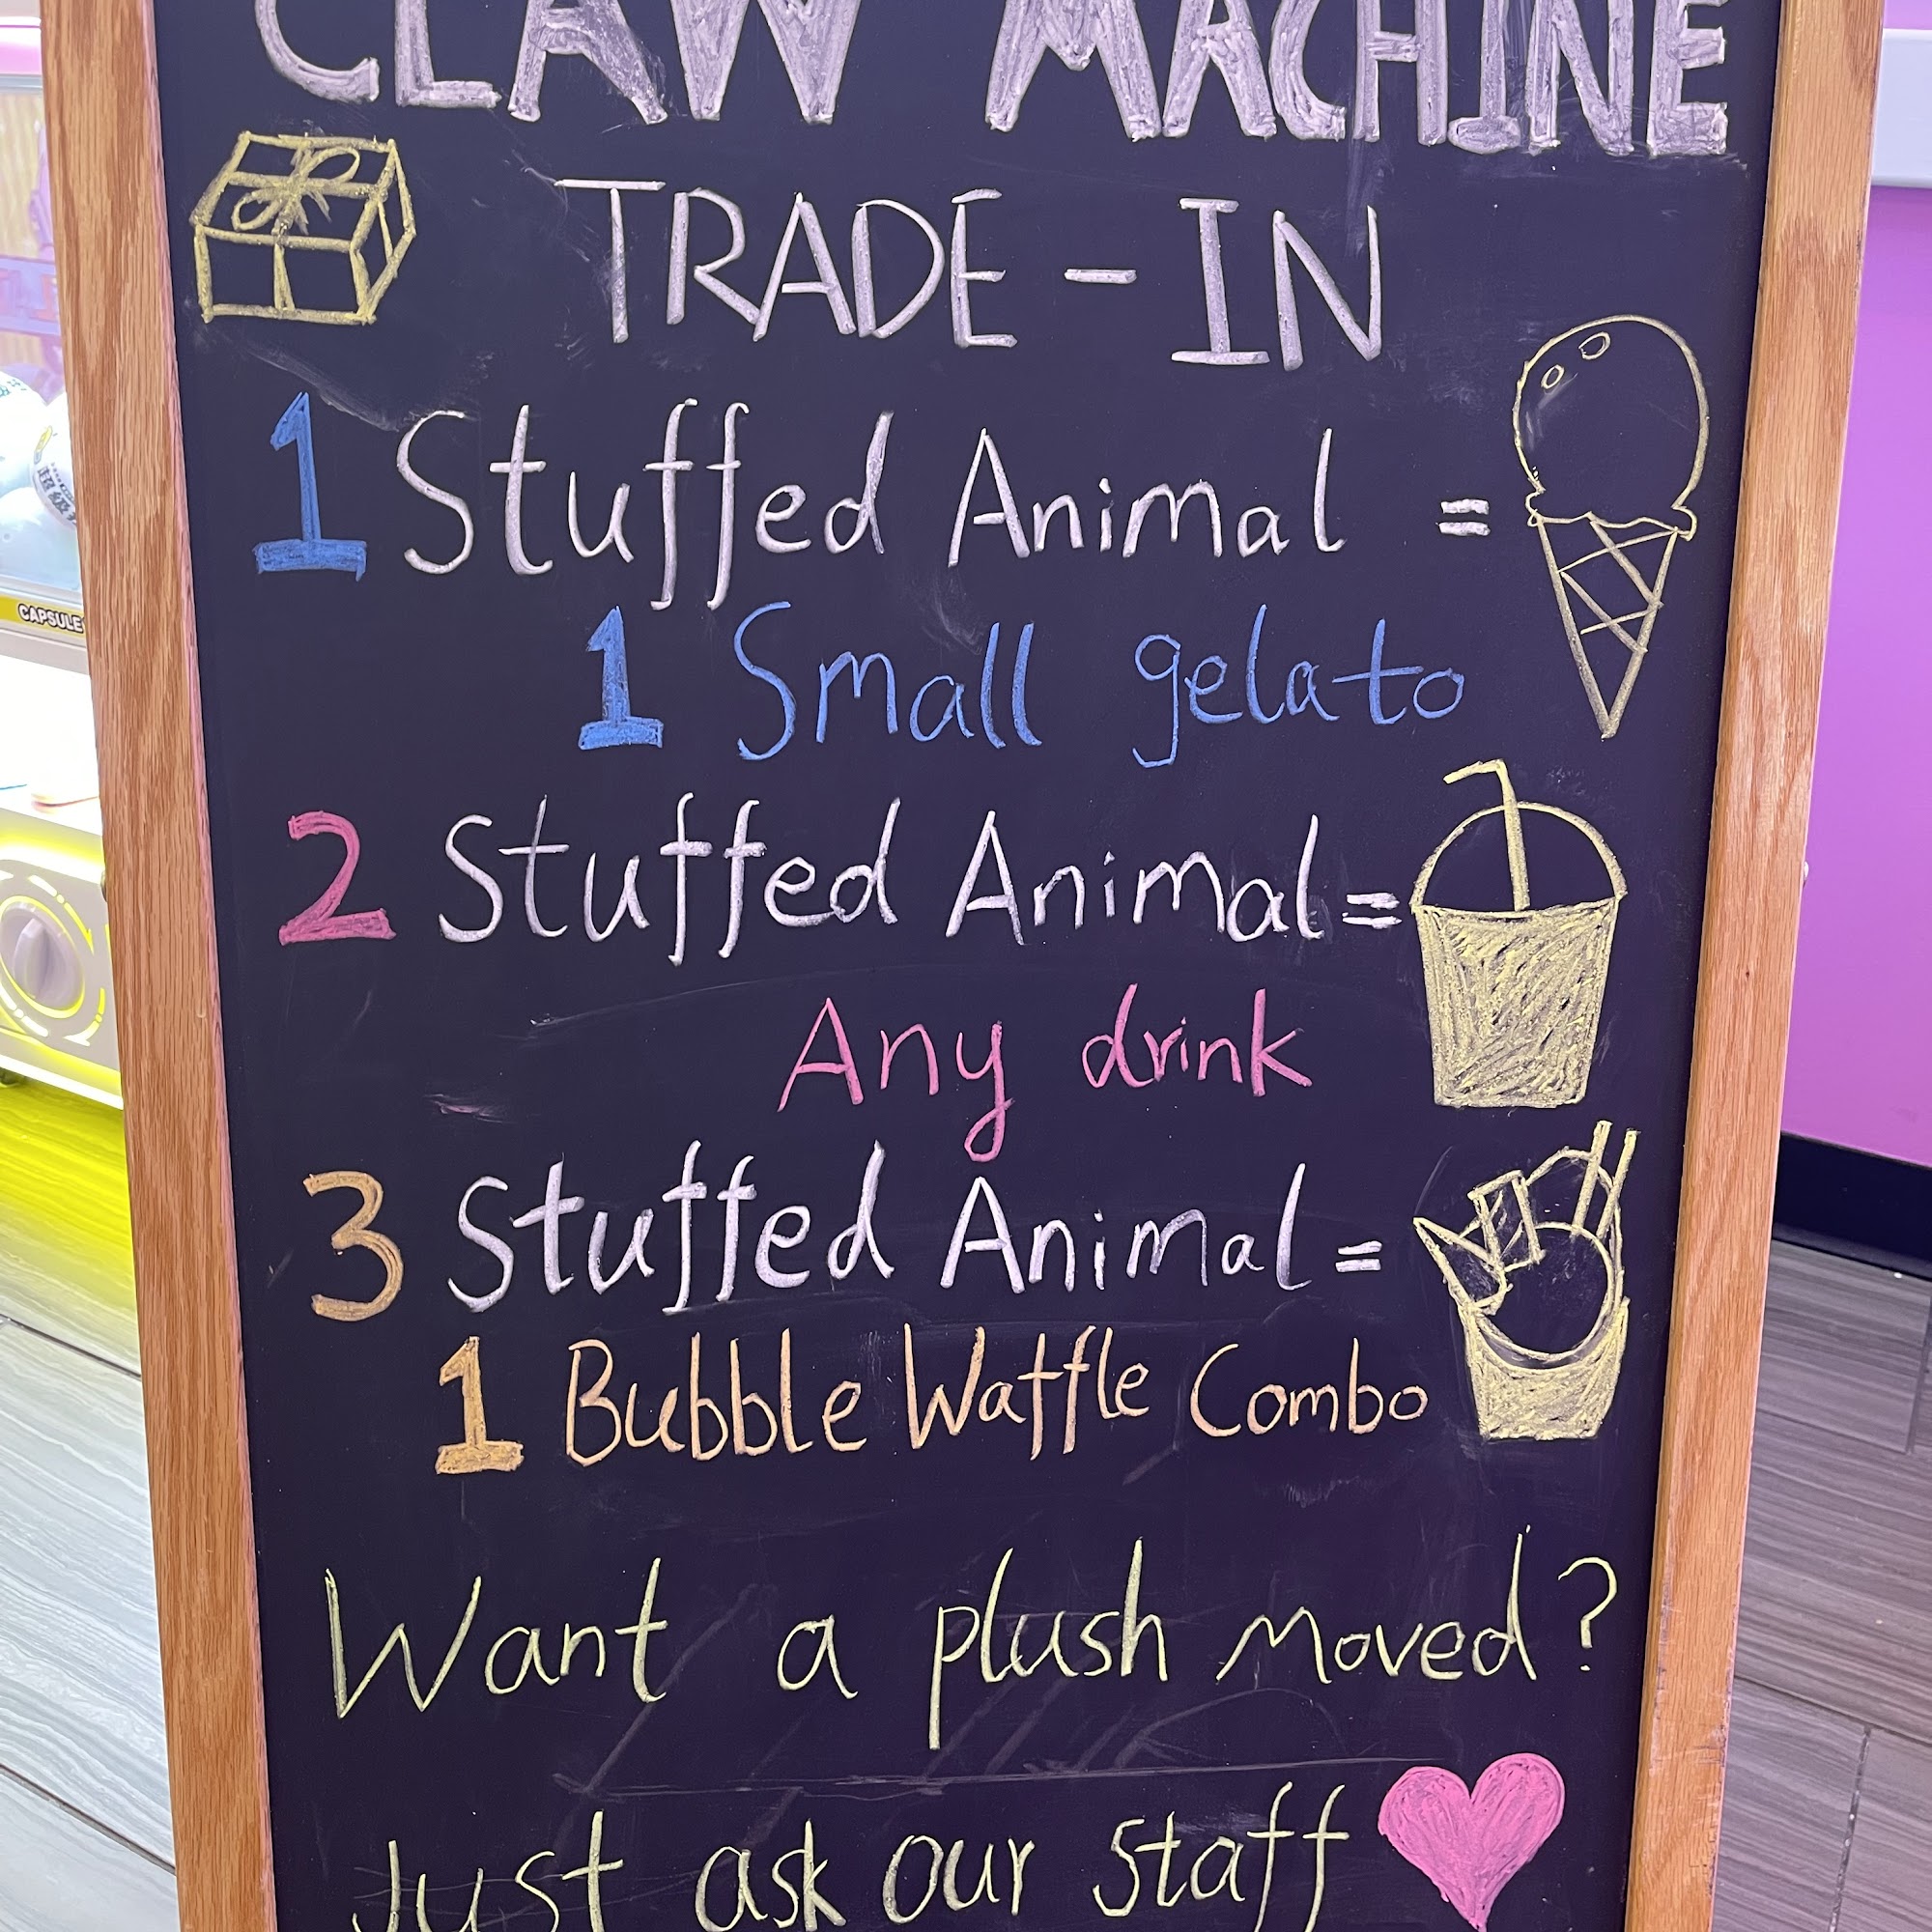 CLAW MACHINE
TRADE-IN
1 Stuffed Animal =
1 Small gelato
2 Stuffed Animal =
Any drink
3 Stuffed Animal =
1 Bubble Waffle Combo
Want a plush moved?
Just ask our staff
CAPSULE